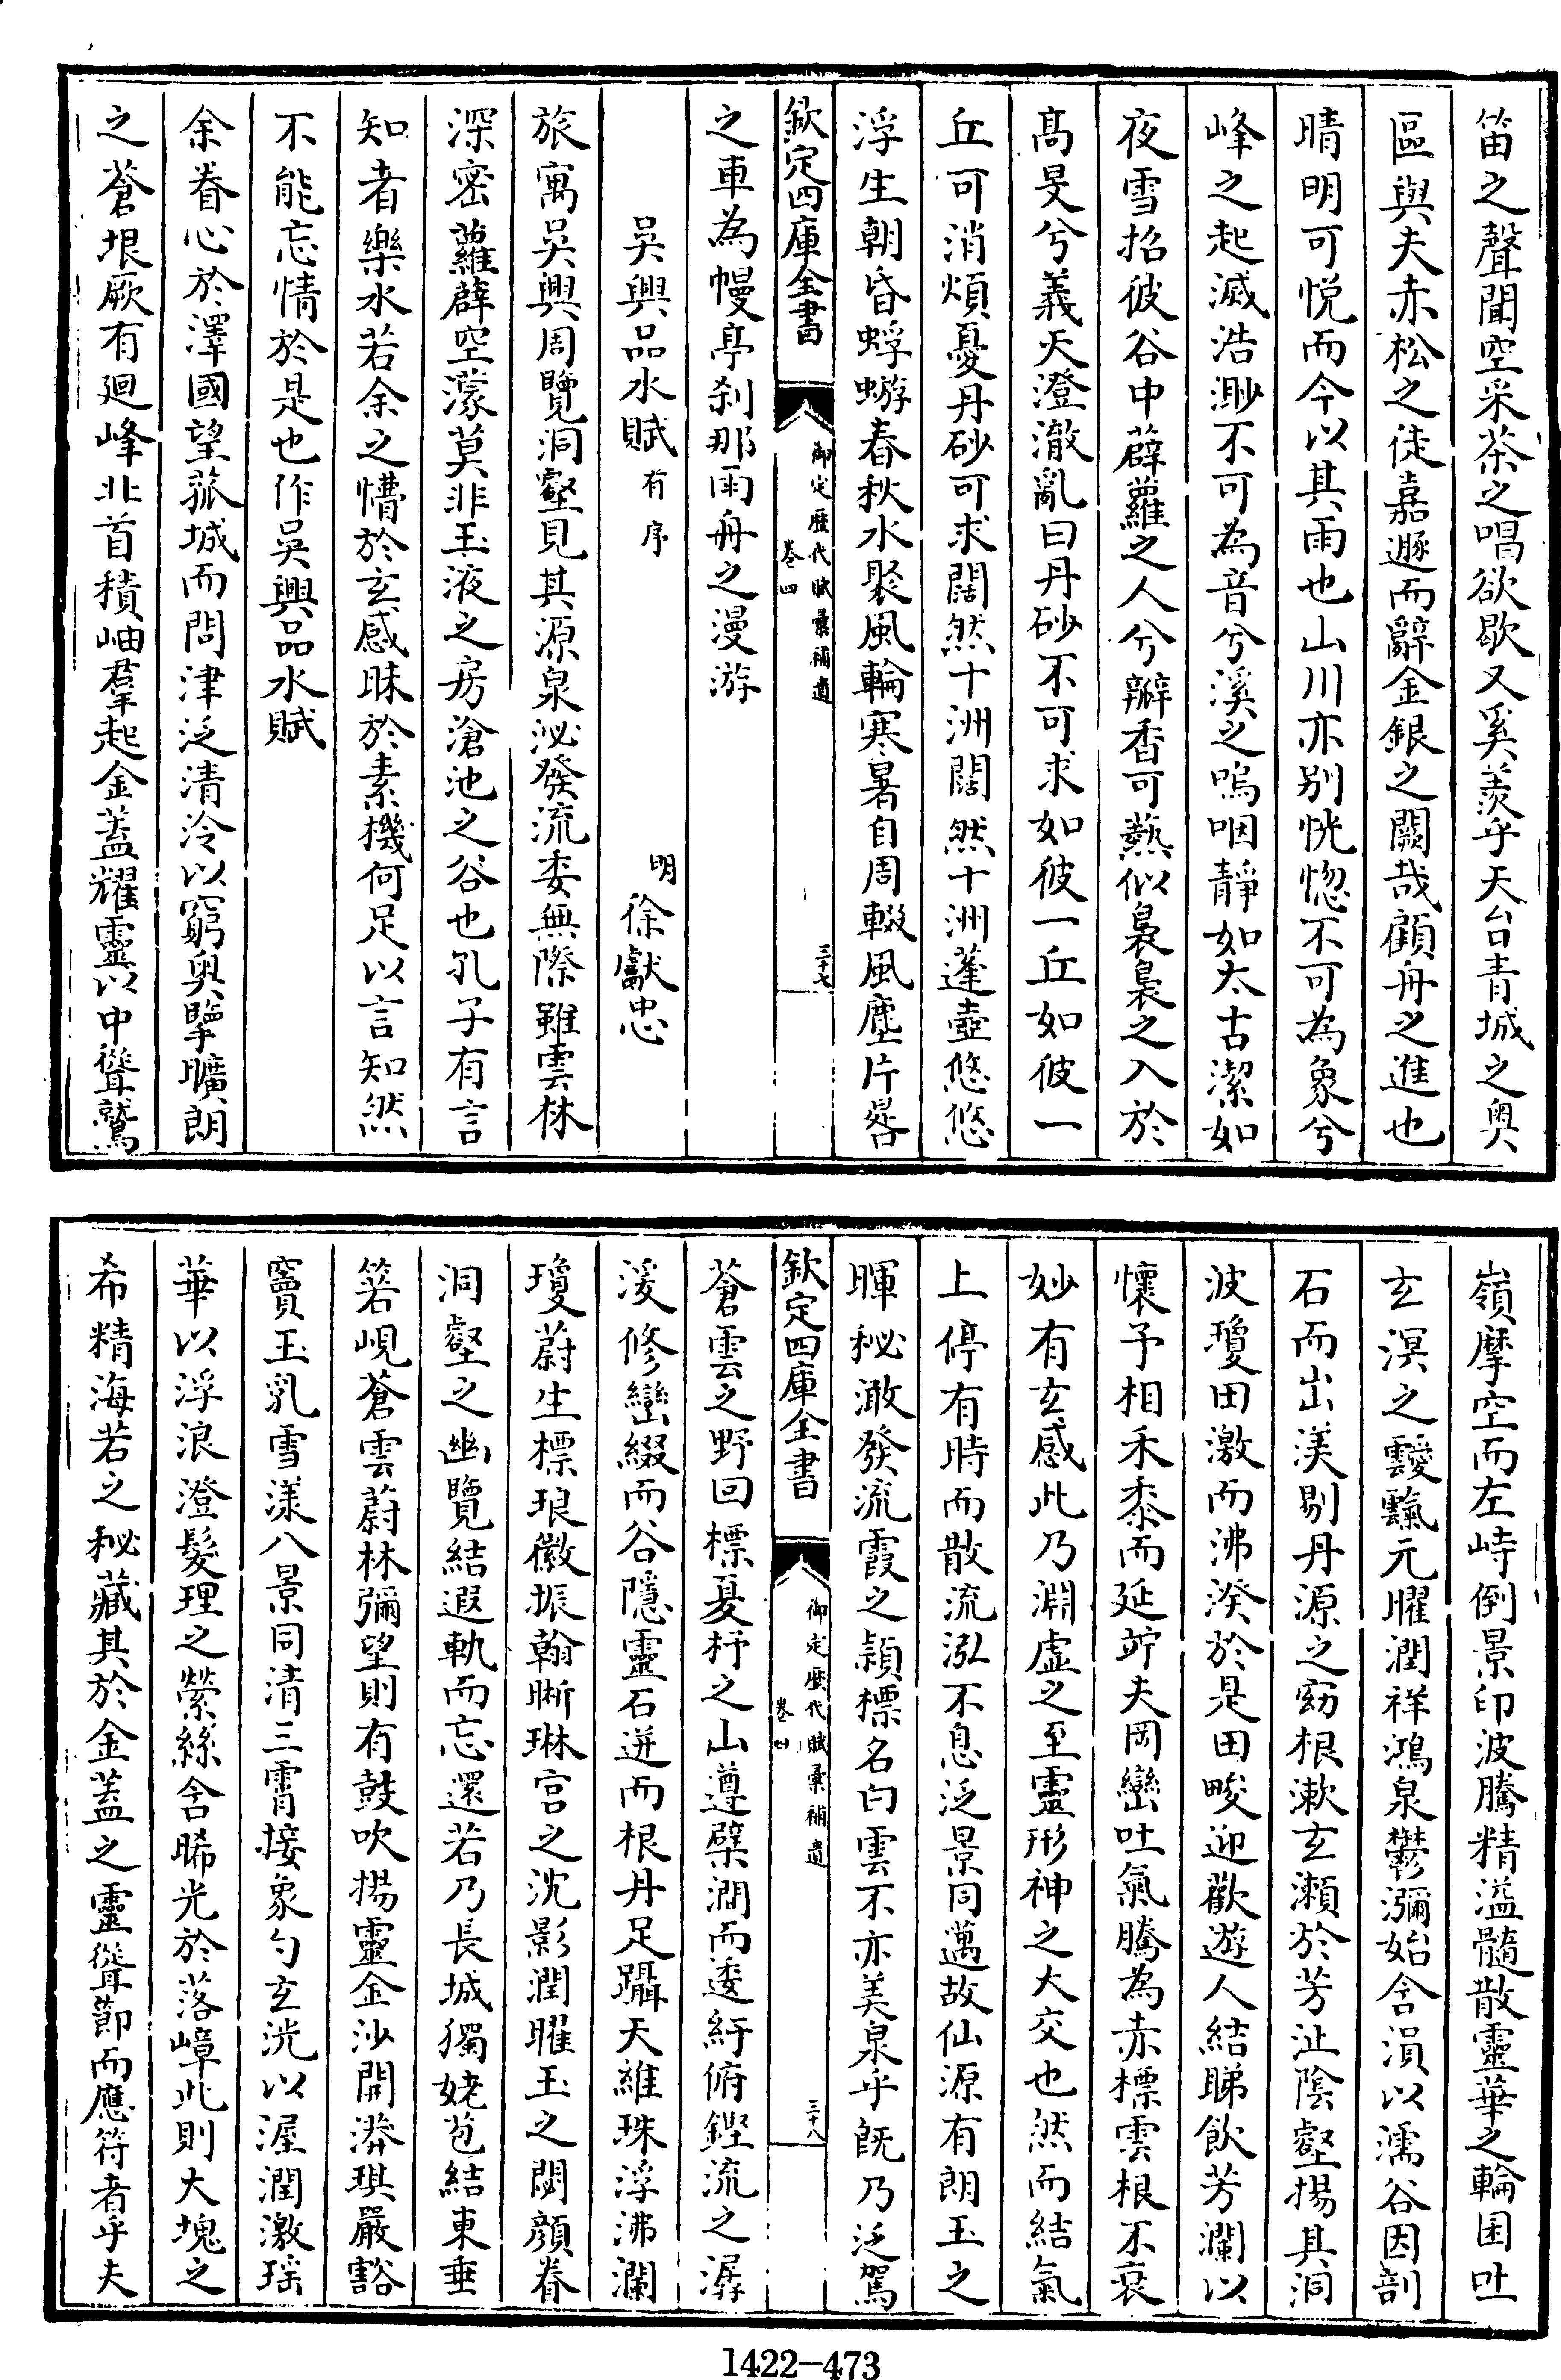 笛之聲聞空采茶之唱欲歇又奚羨乎天台青城之奥
區與夫赤松之徒嘉遯而辭金銀之闕哉顧舟之進也
晴明可悦而今以其雨也山川亦别恍惚不可為象兮
峰之起滅浩渺不可為音兮溪之嗚咽靜如太古潔如
夜雪招彼谷中薜蘿之人兮辦香可爇似裊裊之入於
髙旻兮義天澄澈亂曰丹砂不可求如彼一丘如彼一
丘可消煩憂丹砂可求闊然十洲闊然十洲蓬壺悠悠
浮生朝昏蜉蝣春秋水聚風輪寒暑自周輟風塵片晷
欽定四庫全書
御定歴代賦彙補遺
卷四
三十七
之車為幔亭刹那雨舟之漫游
吳興品水賦有序
明徐獻忠
旅寓吳興周覽洞壑見其源泉泌發流委無際雖雲林
深密蘿薜空濛莫非玉液之房滄池之谷也孔子有言
知者樂水若余之懵於玄感昧於素機何足以言知然
不能忘情於是也作吳興品水賦
余眷心於澤國望菰城而問津泛清泠以窮奥擥曠朗
之蒼垠厥有廻峰北首積岫羣起金葢耀靈以中聳鷲
嶺摩空而左峙倒景印波騰精溢髓散靈華之輪囷吐
玄溟之靉靆元曜潤祥鴻泉鬱瀰始含溳以濡谷因剖
石而出渼剔丹源之窈根漱玄瀨於芳沚陰壑揚其洞
波瓊田激而沸湀於是田畯迎歡遊人結睇飲芳瀾以
懷予相禾黍而延竚夫岡巒吐氣騰為赤標雲根不衰
妙有玄感此乃淵虚之至靈形神之大交也然而結氣
上停有時而散流泓不息泛景同邁故仙源有朗玉之
暉秘澉發流霞之頴標名白雲不亦美泉乎既乃泛駕
欽定四庫全書
御定歴代賦彙補遺
卷四
三十八
蒼雲之野回標夏杼之山遵檗澗而逶紆俯鏗流之潺
湲修巒綴而谷隱靈石迸而根丹足躡天維珠浮沸瀾
瓊蔚生標琅徽振翰晰琳宫之沈影潤曜玉之閟顔眷
洞壑之幽覽結遐軌而忘還若乃長城獨姥苞結東垂
箬峴蒼雲蔚林彌望則有鼓吹揚靈金沙開漭琪巖豁
竇玉乳雪漾八景同清三霄接象勺玄洸以渥潤激瑶
華以浮浪澄髮理之縈絲含晞光於落嶂此則大塊之
希精海若之秘藏其於金葢之靈聳節而應符者乎夫
1422-473